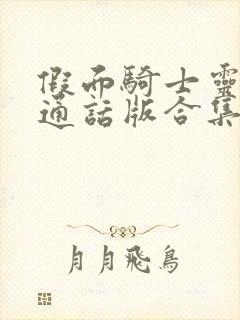 假面騎士靈
通話版合集
月月飛鳥